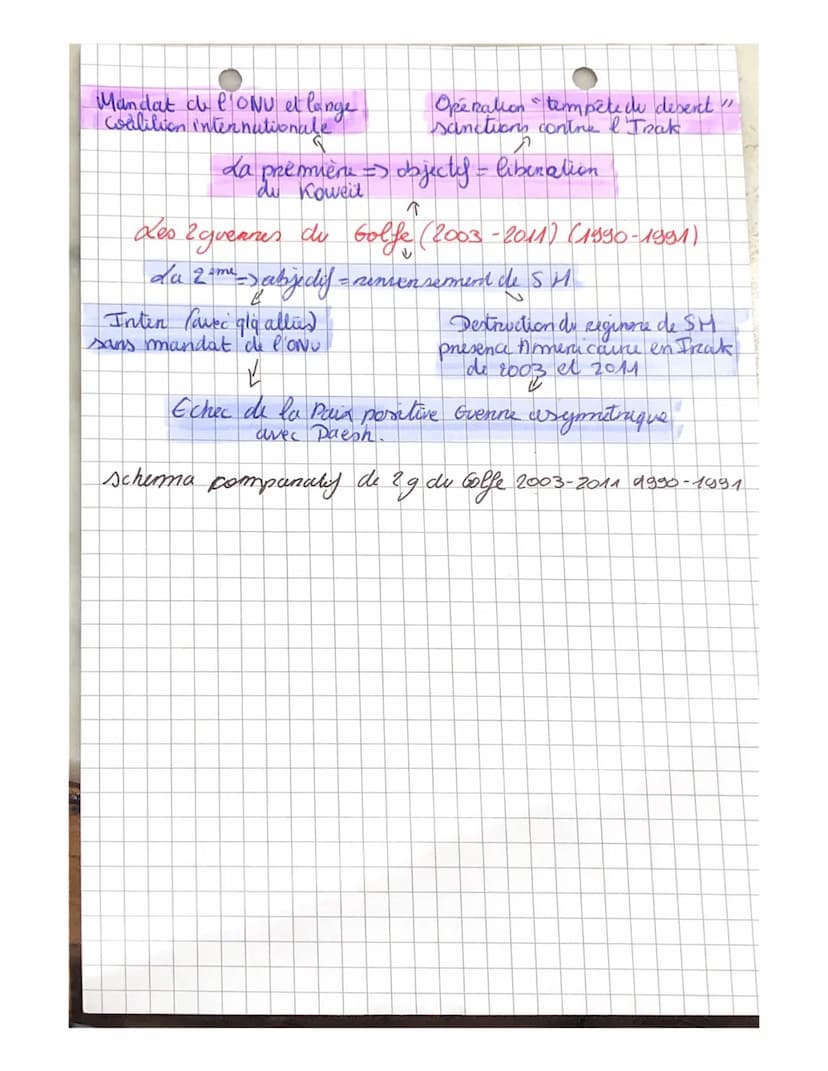 Mandat de l'ONU et large
coalition internationale
Opération "tempête du desert"
sanctions contre l'Irak
La première => objectif = libération
du Koweit
Les 2 guerres du Golfe (2003-2011) (1990-1991)
La 2ème => objectif = renversement de SH
Inter (avec qlq alliés)
sans mandat de l'ONU
Destruction du regime de SH
presence Americaine en Irak
de 2003 et 2011
Echec de la Paix positive Guerre asymétrique
avec Daesh.
schema comparatif de 2g du Golfe 2003-2011 1990-1991